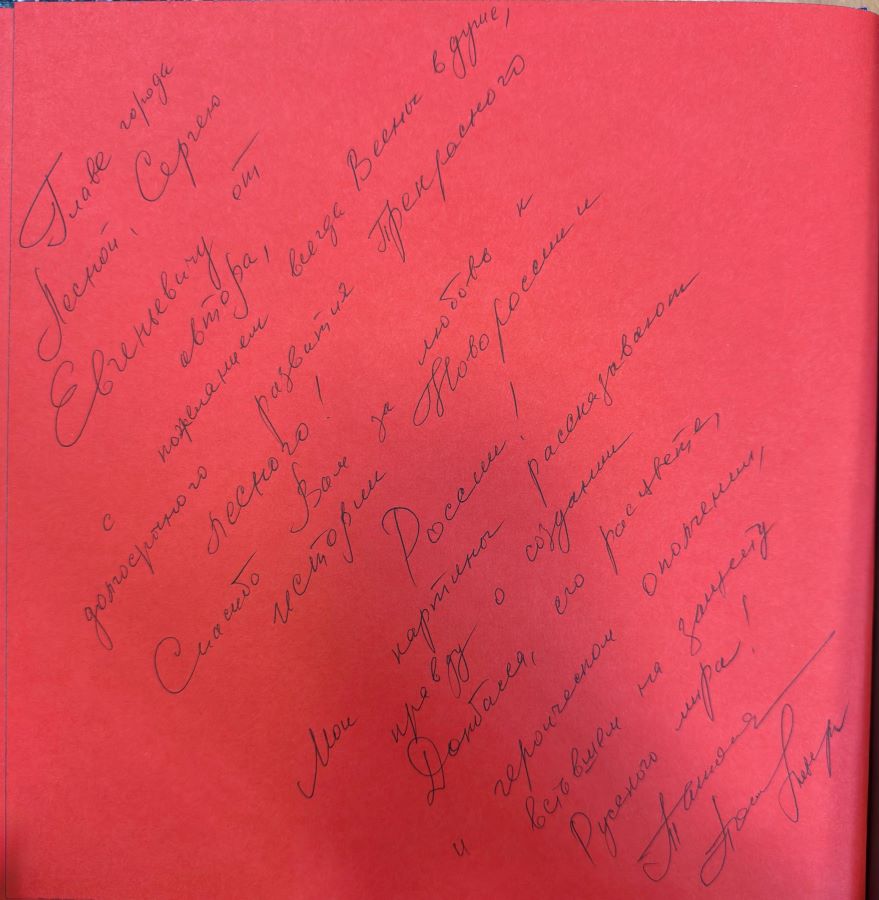 Главе города
Лесной, Сергею
Евгеньевичу от
автора,
с пожеланием всегда Весны в душе,
долгосрочного развития Прекрасного
Лесного!
Спасибо Вам за любовь к
истории Новороссии и
России!
Мои картины рассказывают
правду о создании
Донбасса, его расцвете,
и героическом ополчении,
вставшем на защиту
Русского мира!